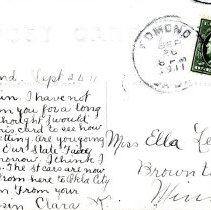 POST CARD
nd. Sept 26 11
in. I have not
om you for a long
thought I would
is card to see how
etting. are you going
Our State Fair
morrow. I think I
. The st cars are now
from here to Okla City
n. From your
sin Clara K.
EDMOND
SEP
26
PM
1911
Miss Ella Le
Brown
Minn